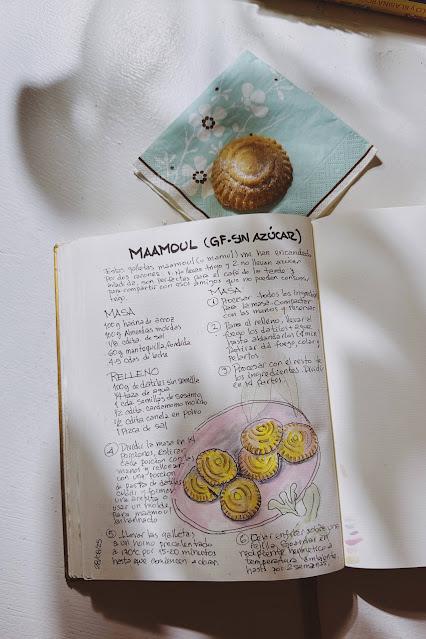 MAAMOUL (GF-SIN AZÚCAR)
Estas galletas maamoul (o mamul) me han encantado
por dos razones: 1. No llevan trigo y 2. no llevan azúcar
añadida, son perfectas para el café de la tarde y
para compartir con esos amigos que no pueden consumir
trigo.
MASA
100g harina de arroz
100g almendras molidas
1/8 cdita de sal
60g mantequilla fundida
4-5 cdas de leche
RELLENO
100g de dátiles sin semilla
1/4 taza de agua
1 cda semillas de sésamo
1/2 cdita cardamomo molido
1/2 cdita canela en polvo
1 pizca de sal
MASA
① Procesar todos los ingredientes
para la masa. Compactar
con las manos y reservar
② Para el relleno, llevar al
fuego los dátiles + agua
hasta ablandarlos (4 min)
Retirar del fuego, colar y
pelarlos.
③ Procesar con el resto de
los ingredientes. Dividir
en 14 partes.
④ Dividir la masa en 14
porciones, estirar
cada porción con las
manos y rellenar
con una porción
de pasta de dátiles
cubrir y formar
una bolita o
usar un molde
para maamoul
enharinado
⑤ Llevar las galletas
a un horno precalentado
a 170°C por 15-20 minutos
hasta que comiencen a dorar.
⑥ Dejar enfriar sobre una
rejilla. Guardar en
recipiente hermético a
temperatura ambiente
hasta por 2 semanas.